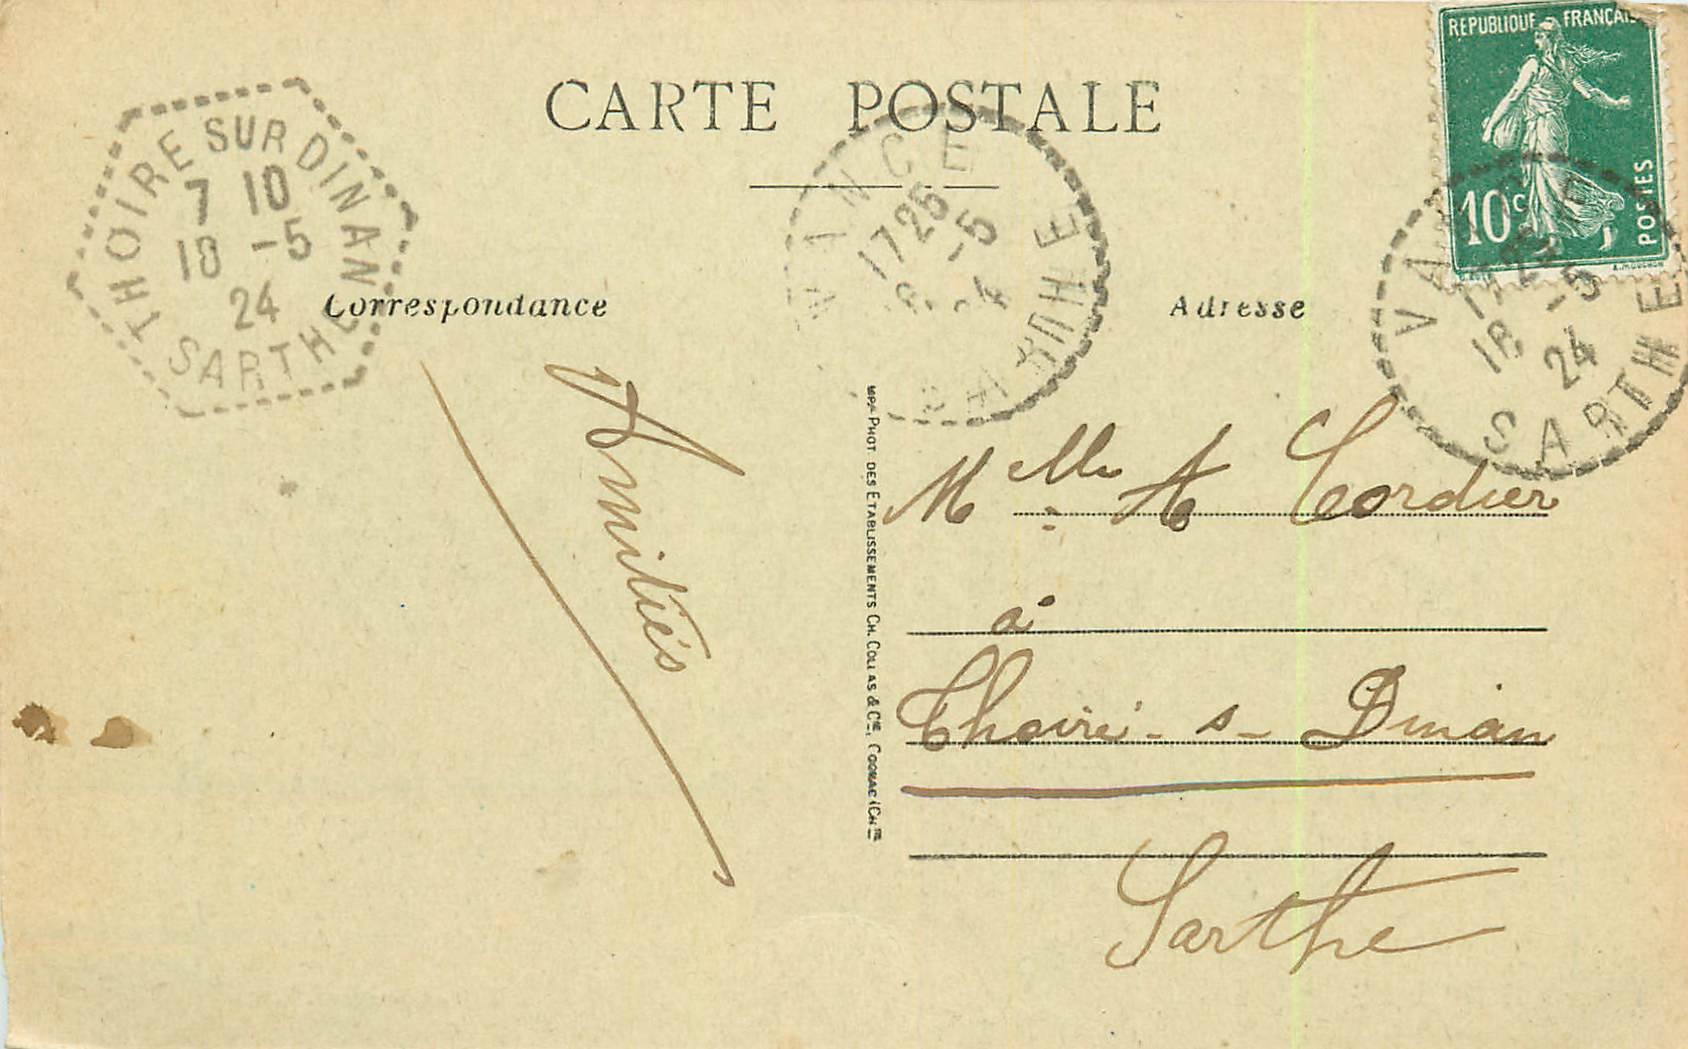 CARTE POSTALE
REPUBLIQUE FRANÇAISE
10c
POSTES
THOIRE SUR DINAN
7 10
18 -5
24
SARTHE
VANCE
17 25
-5
24
SARTHE
VANCE
18 -5
24
SARTHE
Correspondance
Adresse
Amitiés
IMP. PHOT. DES ETABLISSEMENTS CH. COLLAS & Cie, COGNAC (Chte
Melle A Cordier
à
Thoiré - s - Dinan
Sarthe